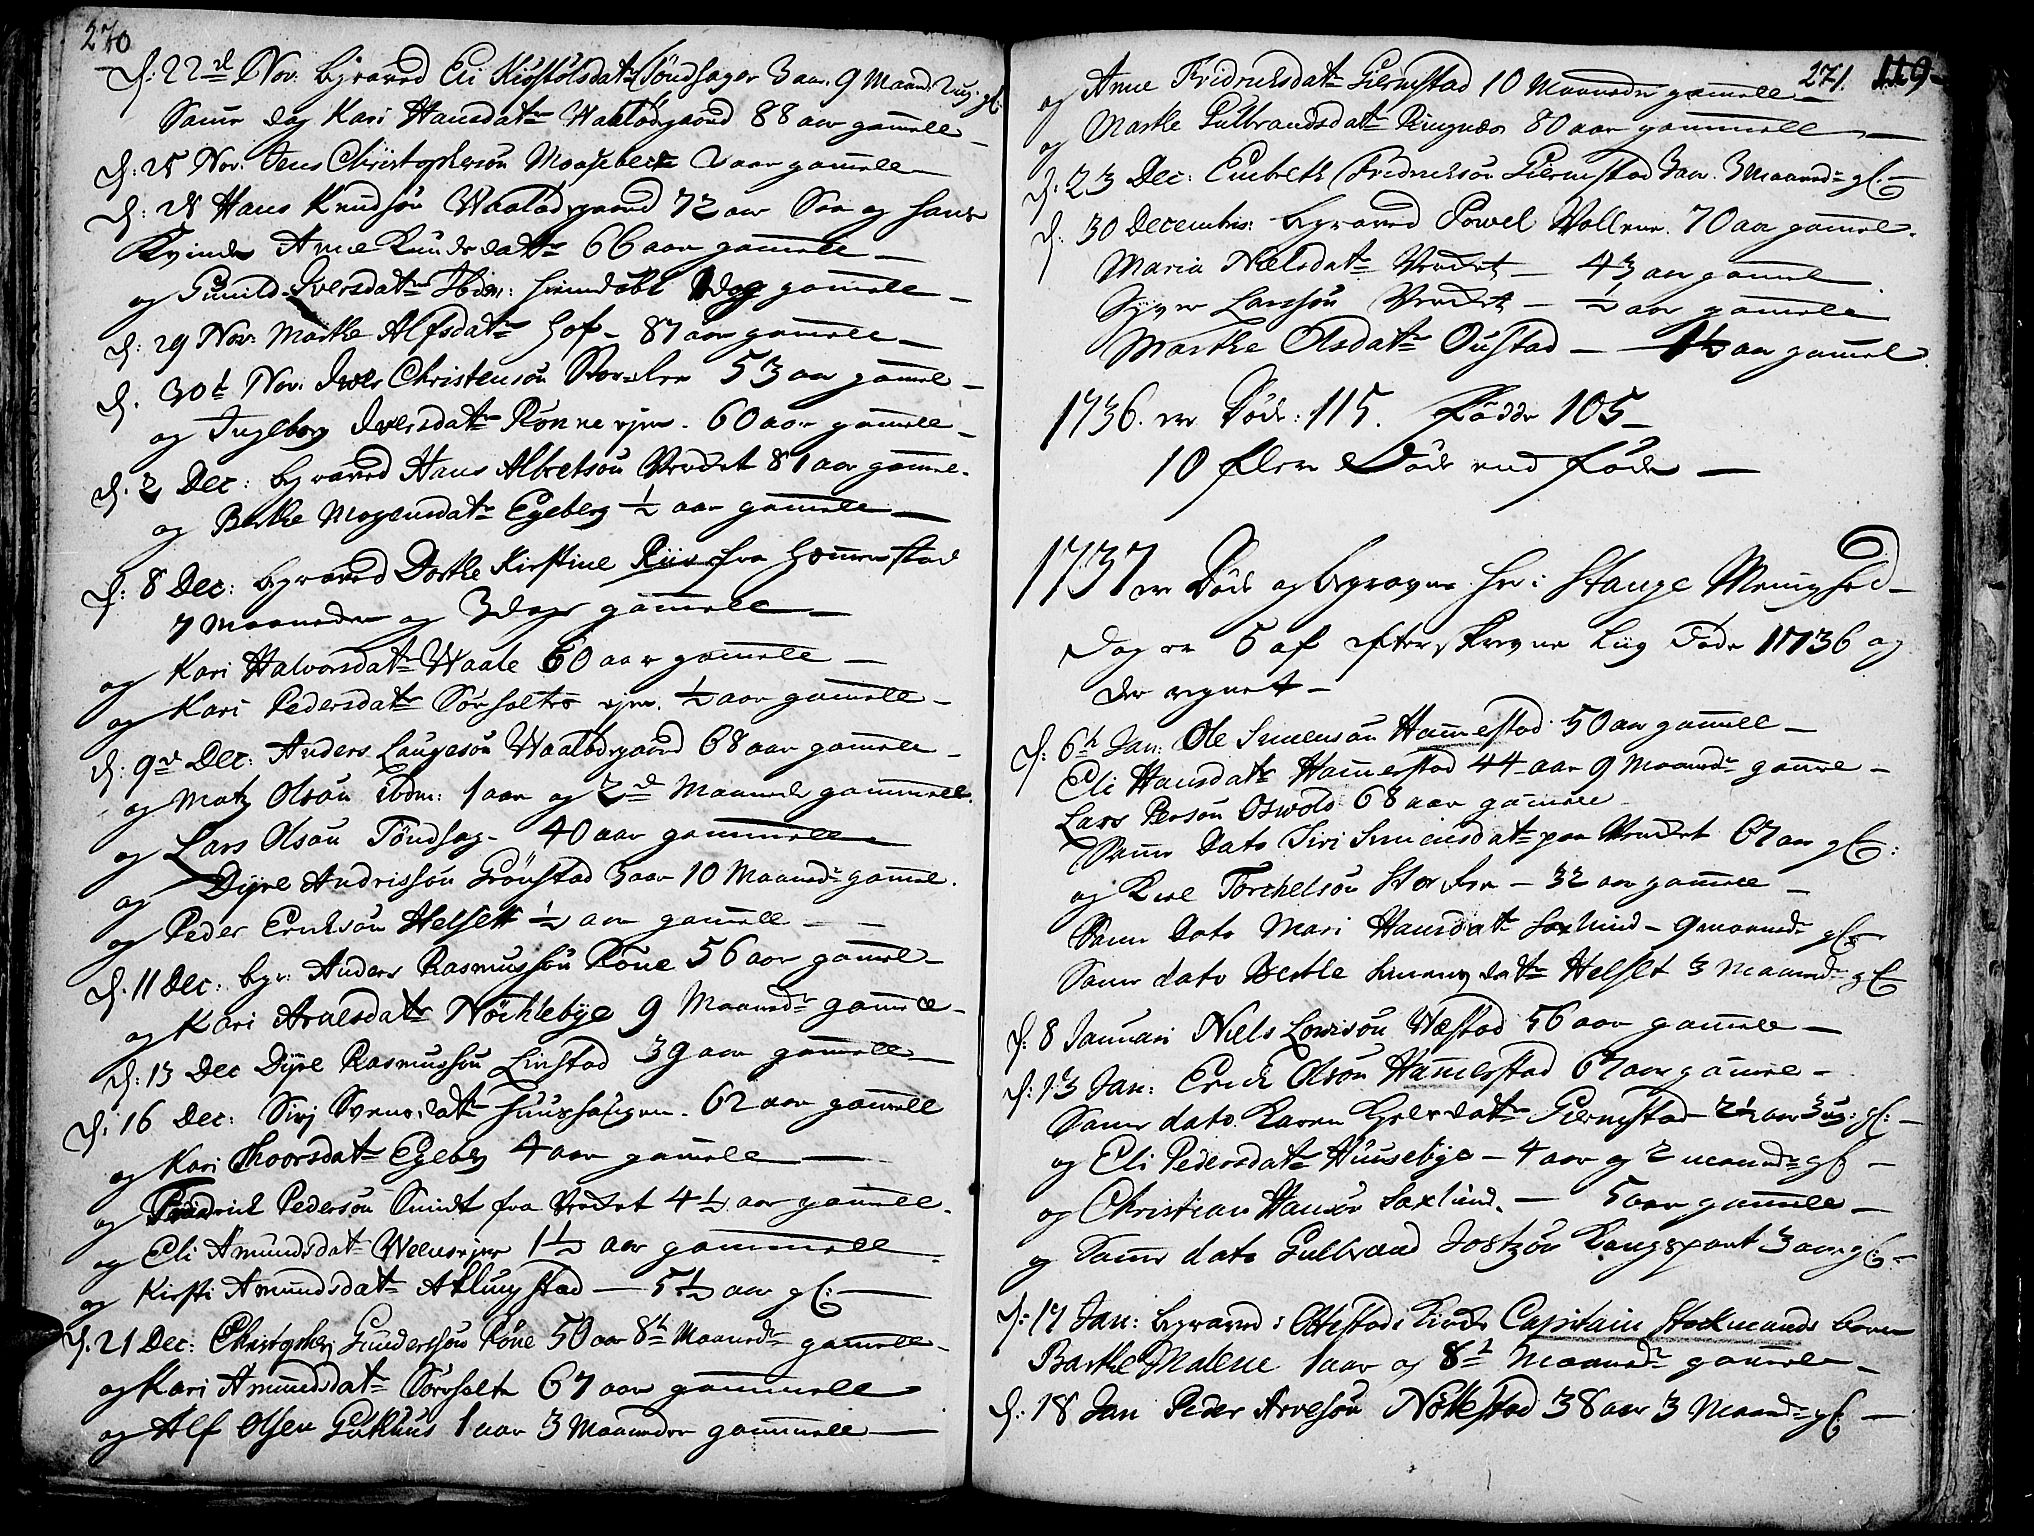 270
d: 22de Nov. begraved Eli Kiøstolsdatr Tøndhager 3 aar. 9 Maand. 2 ug. gl.
Same dag Kari Hansdatr Waalødegaard 88 aar gamell
d: 25 Nov. Jens Christophersøn 2 aar gamell
d: 28 Hans Knudsøn Waalødegaard 72 aar Saa og hans
Kvinde Anne Knudsdatr 66 aar gamelle
og Gunild Iversdatr Ibm: dag gamele
d: 29 Nov: Marthe Alfsdatr Hof - 87 aar gamelle
d. 30t Nov. Iver Christensøn 53 aar gamel
og Ingeborg Iversdatr Rønne ejer. 60 aar gamelle
d. 2 Dec: begraved Hans Albretsøn Vredet 81 aar gamel.
og Berthe Mogensdatr Egeberg ½ aar gamele
d: 8 Dec: begraved Dorthe Kirstine fra Hommerstad
7 Maaneder og 3 dage gamell
og Kari Halvorsdatr Waale 60 aar gamele
og Kari Pedersdatr Sørholte ejer. ½ aar gamele
d: 9de Dec: Anders Laugesøn Waalødegaard 68 aar gamele
og Matz Olsøn ibdm: 1 aar og 2de Maaneder gammell
og Lars Olsøn Tøndhag - 40 aar gammell
og Dyre Andrissøn Grønstad 3 aar 10 Maander gamel.
og Peder Erichsøn Helset ½ aar gamell
d. 11 Dec: begr: Anders Rasmussøn Røne 56 aar gamel
og Kari Arnesdatr Nøchlebye 9 Maander gamele
d: 13 Dec Dyre Rasmussøn Linstad 39 aar gamell
d: 16 Dec: Siri Svensdatr 62 aar gamell
og Kari Thoersdatr Egeberg 4 aar gamele
og Fridrich Pedersøn Smidt fra Vredet 4½ aar gamele.
og Eli Amundsdatr 1½ aar gammell
og Kirsti Amundsdatr Atlungstad - 5½ aar gl:
d. 21 Dec: Christopher Gunderssøn Røne 50 aar 8te Maander gamell
og Kari Amundsdatr Sørholte 67 aar gammell
og Alf Olsen Gukhus 1 aar 3 Maaneder gammell
271. 119
og Anne Fridrichsdatr Giermstad 10 Maaneder gamele
og Marthe Gulbrandsdatr Ringnæs 80 aar gammell
d: 23 Dec: Embreth Fredrichsøn Giermstad 3 aar. 3 maander gl:
d: 30 Decembris: begraved Powel Vollene. 70 aar gamel.
Maria Nielsdatr Vredet - 43 aar gamel
Syver Larssøn Vredet - ½ aar gamele
Marthe Olsdatr Oustad - 1½ aar gamel
1736. er Døde: 115. Fødde 105
10 flere Døde end føde
1737 er Døde og begravne her i Stange Menighed
Dog er 5 af efterskrevne Liig Døde 1736 og
der regnet
d: 6te Jan: Ole Simensøn Hamerstad 50 aar gamell
Eli Hansdatr Hamerstad 44 aar 9 Maander gamel
Lars Persøn Oswold 68 aar gamele
Same Dato Siri Simensdatr paa Vredet 67 aar gl:
og Torchelsøn - 32 aar gamell
Same Dato Mari Hansdatr Saxlund - 9 maander gl:
Same dato Berthe datr Helset 3 Maander gl:
d: 8 Januari Niels Lowisøn Wæstad 56 aar gamele
d: 13 Jan: Erich Olsøn Hamerstad 67 aar gamele
Same dato. Karen datr Giermstad 2½ aar 3 ug: gl:
og Eli Pedersdatr Huusebye - 4 aar og 2 maander gl:
og Christian Hansøn Saxlund. - 5 aar gamele
og Same dato Gulbrand Jostzøn 3 aar gl:
d: 17 Jan: begraved i Ottestads Kirke Capitain Stockmands barn
Barthe Malene 1 aar og 8te Maander gamele
d: 18 Jan Peder Arvesøn Nøttestad 38 aar 3 Maander gl: